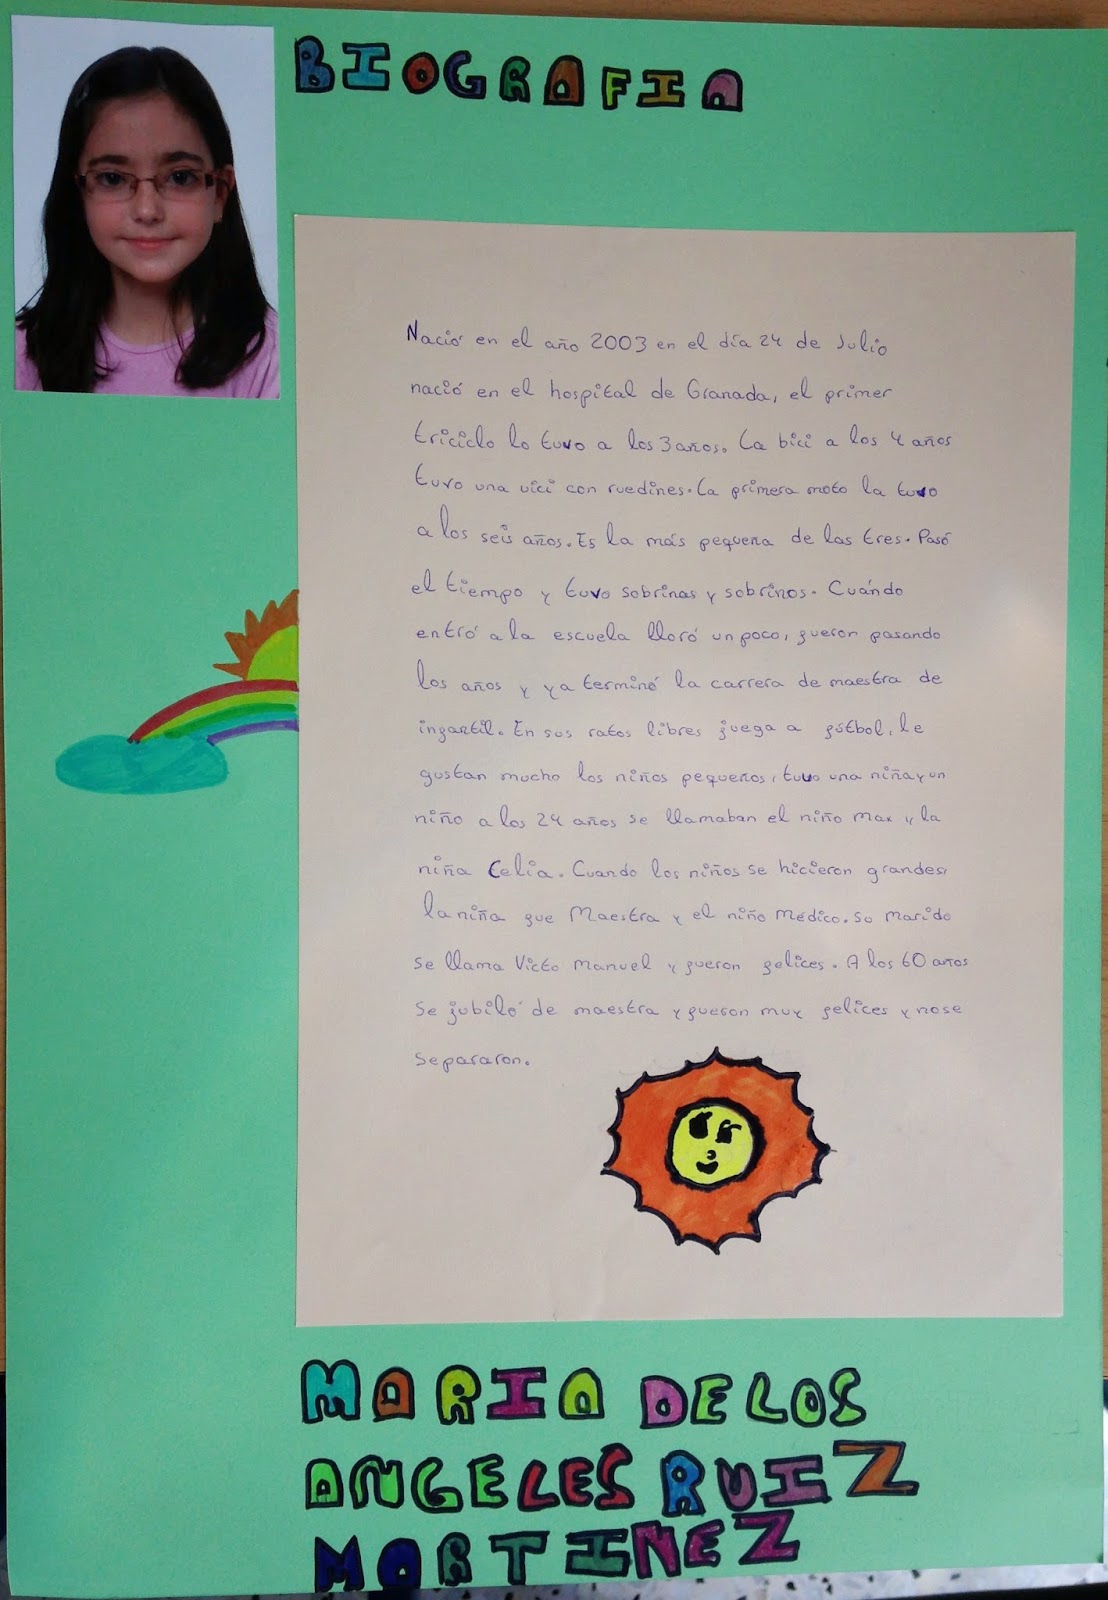 BIOGRAFIA
Nació en el año 2003 en el día 24 de Julio
nació en el hospital de Granada, el primer
triciclo lo tuvo a los 3 años. La bici a los 4 años
tuvo una vici con ruedines. La primera moto la tuvo
a los seis años. Es la más pequeña de las tres. Pasó
el tiempo y tuvo sobrinas y sobrinos. Cuándo
entró a la escuela lloró un poco, fueron pasando
los años y ya terminó la carrera de maestra de
infantil. En sus ratos libres juega a fútbol, le
gustan mucho los niños pequeños, tuvo una niña y un
niño a los 24 años se llamaban el niño Max y la
niña Celia. Cuando los niños se hicieron grandes,
la niña fue Maestra y el niño Médico. Su marido
se llama Victo Manuel y fueron felices. A los 60 años
se jubiló de maestra y fueron muy felices y nose
separaron.
MARIA DE LOS
ANGELES RUIZ
MARTINEZ